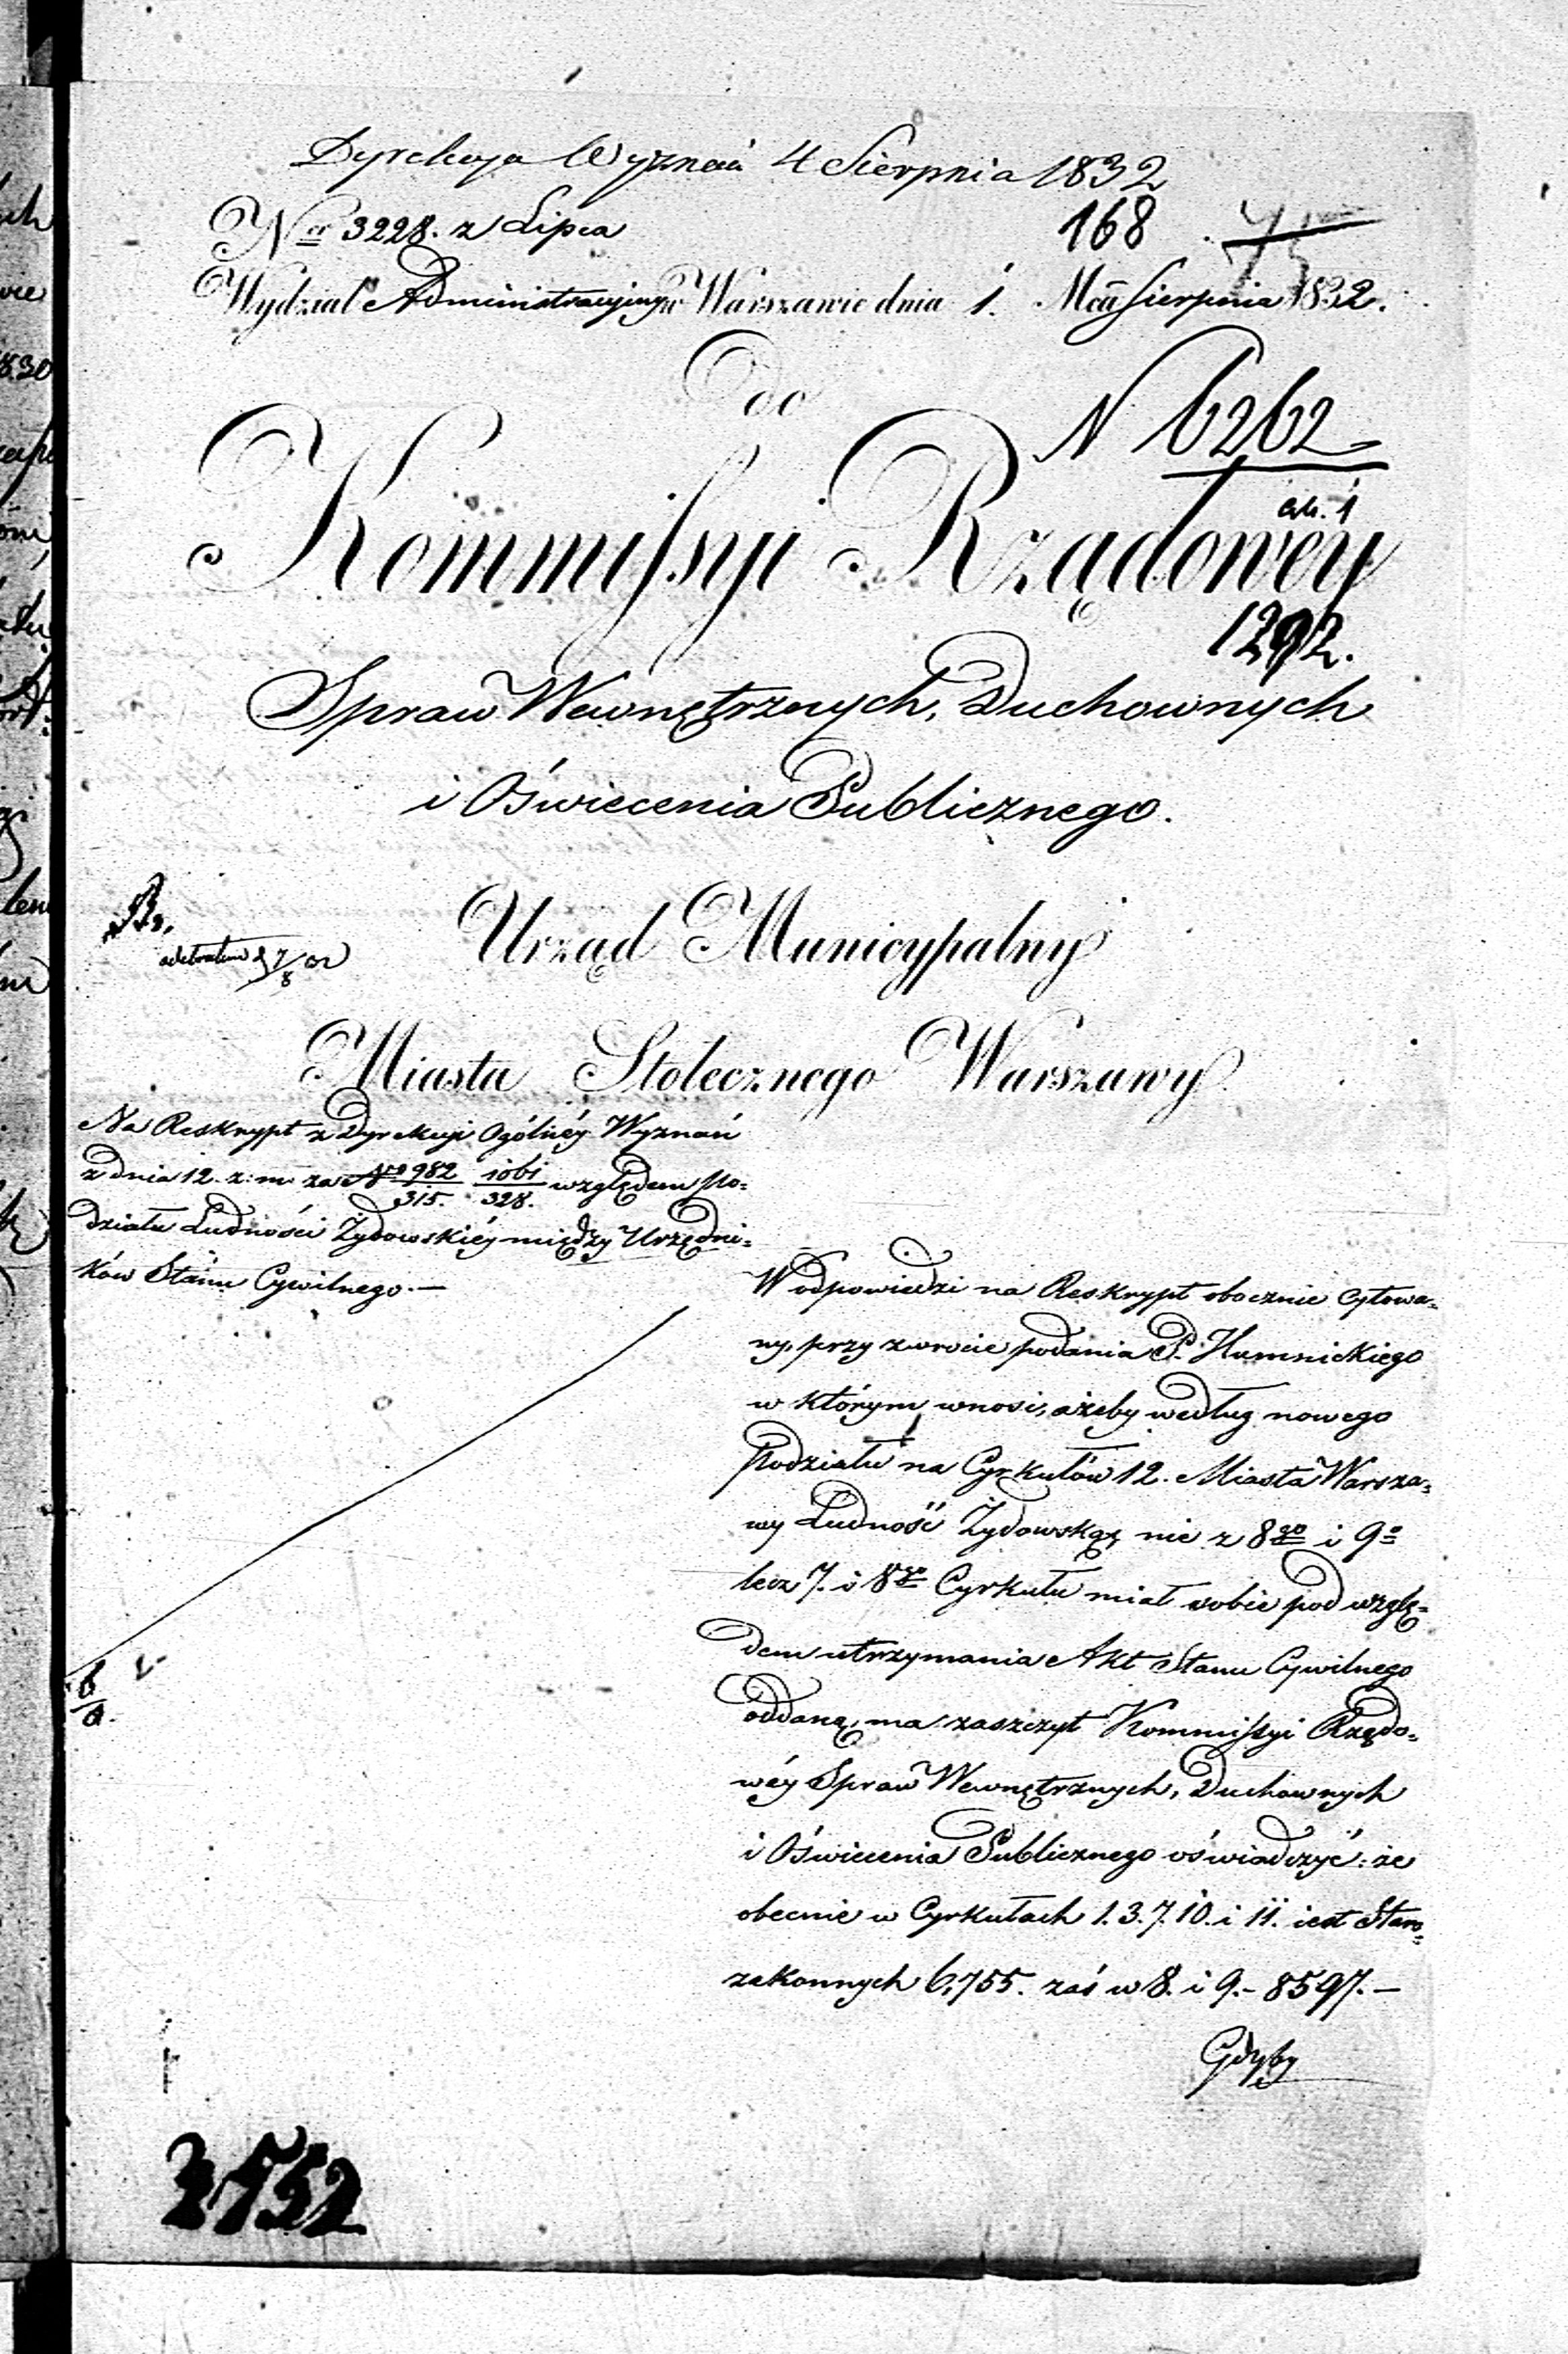 Dyrekcya Wyznań 4 Sierpnia 1832
Nr 3228. z Lipca
168
75
Wydział Administracyjny w Warszawie dnia 1. Mca Sierpnia 1832.
Do
N 6262
Kommissyi Rządowey
1292.
Spraw Wewnętrznych, Duchownych
i Oświecenia Publicznego.
odebrałem d 7/8
Urząd Municypalny
Miasta Stołecznego Warszawy
Na Reskrypt z Dyrekcyi Ogólnéy Wyznań
z dnia 12. z: m. za No 982/315. 1061/328. względem po=
działu Ludności Żydowskiéy między Urzędni=
ków Stanu Cywilnego.—
W odpowiedzi na Reskrypt obocznie cytowa=
ny, przy zwrocie podania P. Humnickiego
w którym wnosi, ażeby według nowego
Podziału na Cyrkułów 12. Miasta Warsza=
wy Ludność Żydowską, nie z 8go i 9o
lecz 7. i 8go Cyrkułu miał sobie pod wzglę=
dem utrzymania Akt Stanu Cywilnego
oddaną, ma zaszczyt Kommissyi Rządo=
wéy Spraw Wewnętrznych, Duchownych
i Oświecenia Publicznego oświadczyć: że
obecnie w Cyrkułach 1. 3. 7. 10. i 11. iest Staro=
zakonnych 6,755. zaś w 8. i 9.- 8597.—
Gdyby